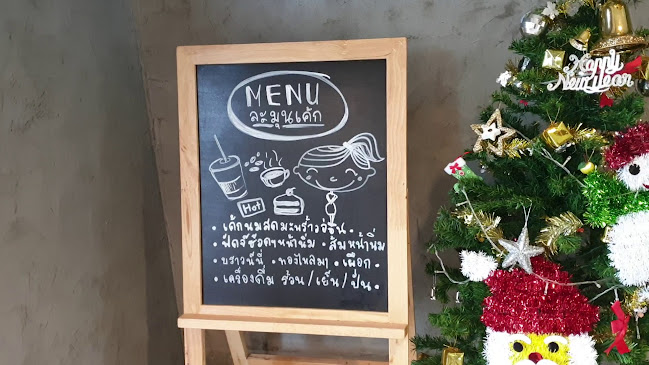 MENU
ละมุนเค้ก
Hot
• เค้กนมสดมะพร้าวอ่อน •
• ฟัดจ์ช็อคฯหน้านิ่ม • ส้มหน้านิ่ม
• บราวนี่ • ทองไหลมา • เผือก •
• เครื่องดื่ม ร้อน/เย็น/ปั่น •
Happy
New Year